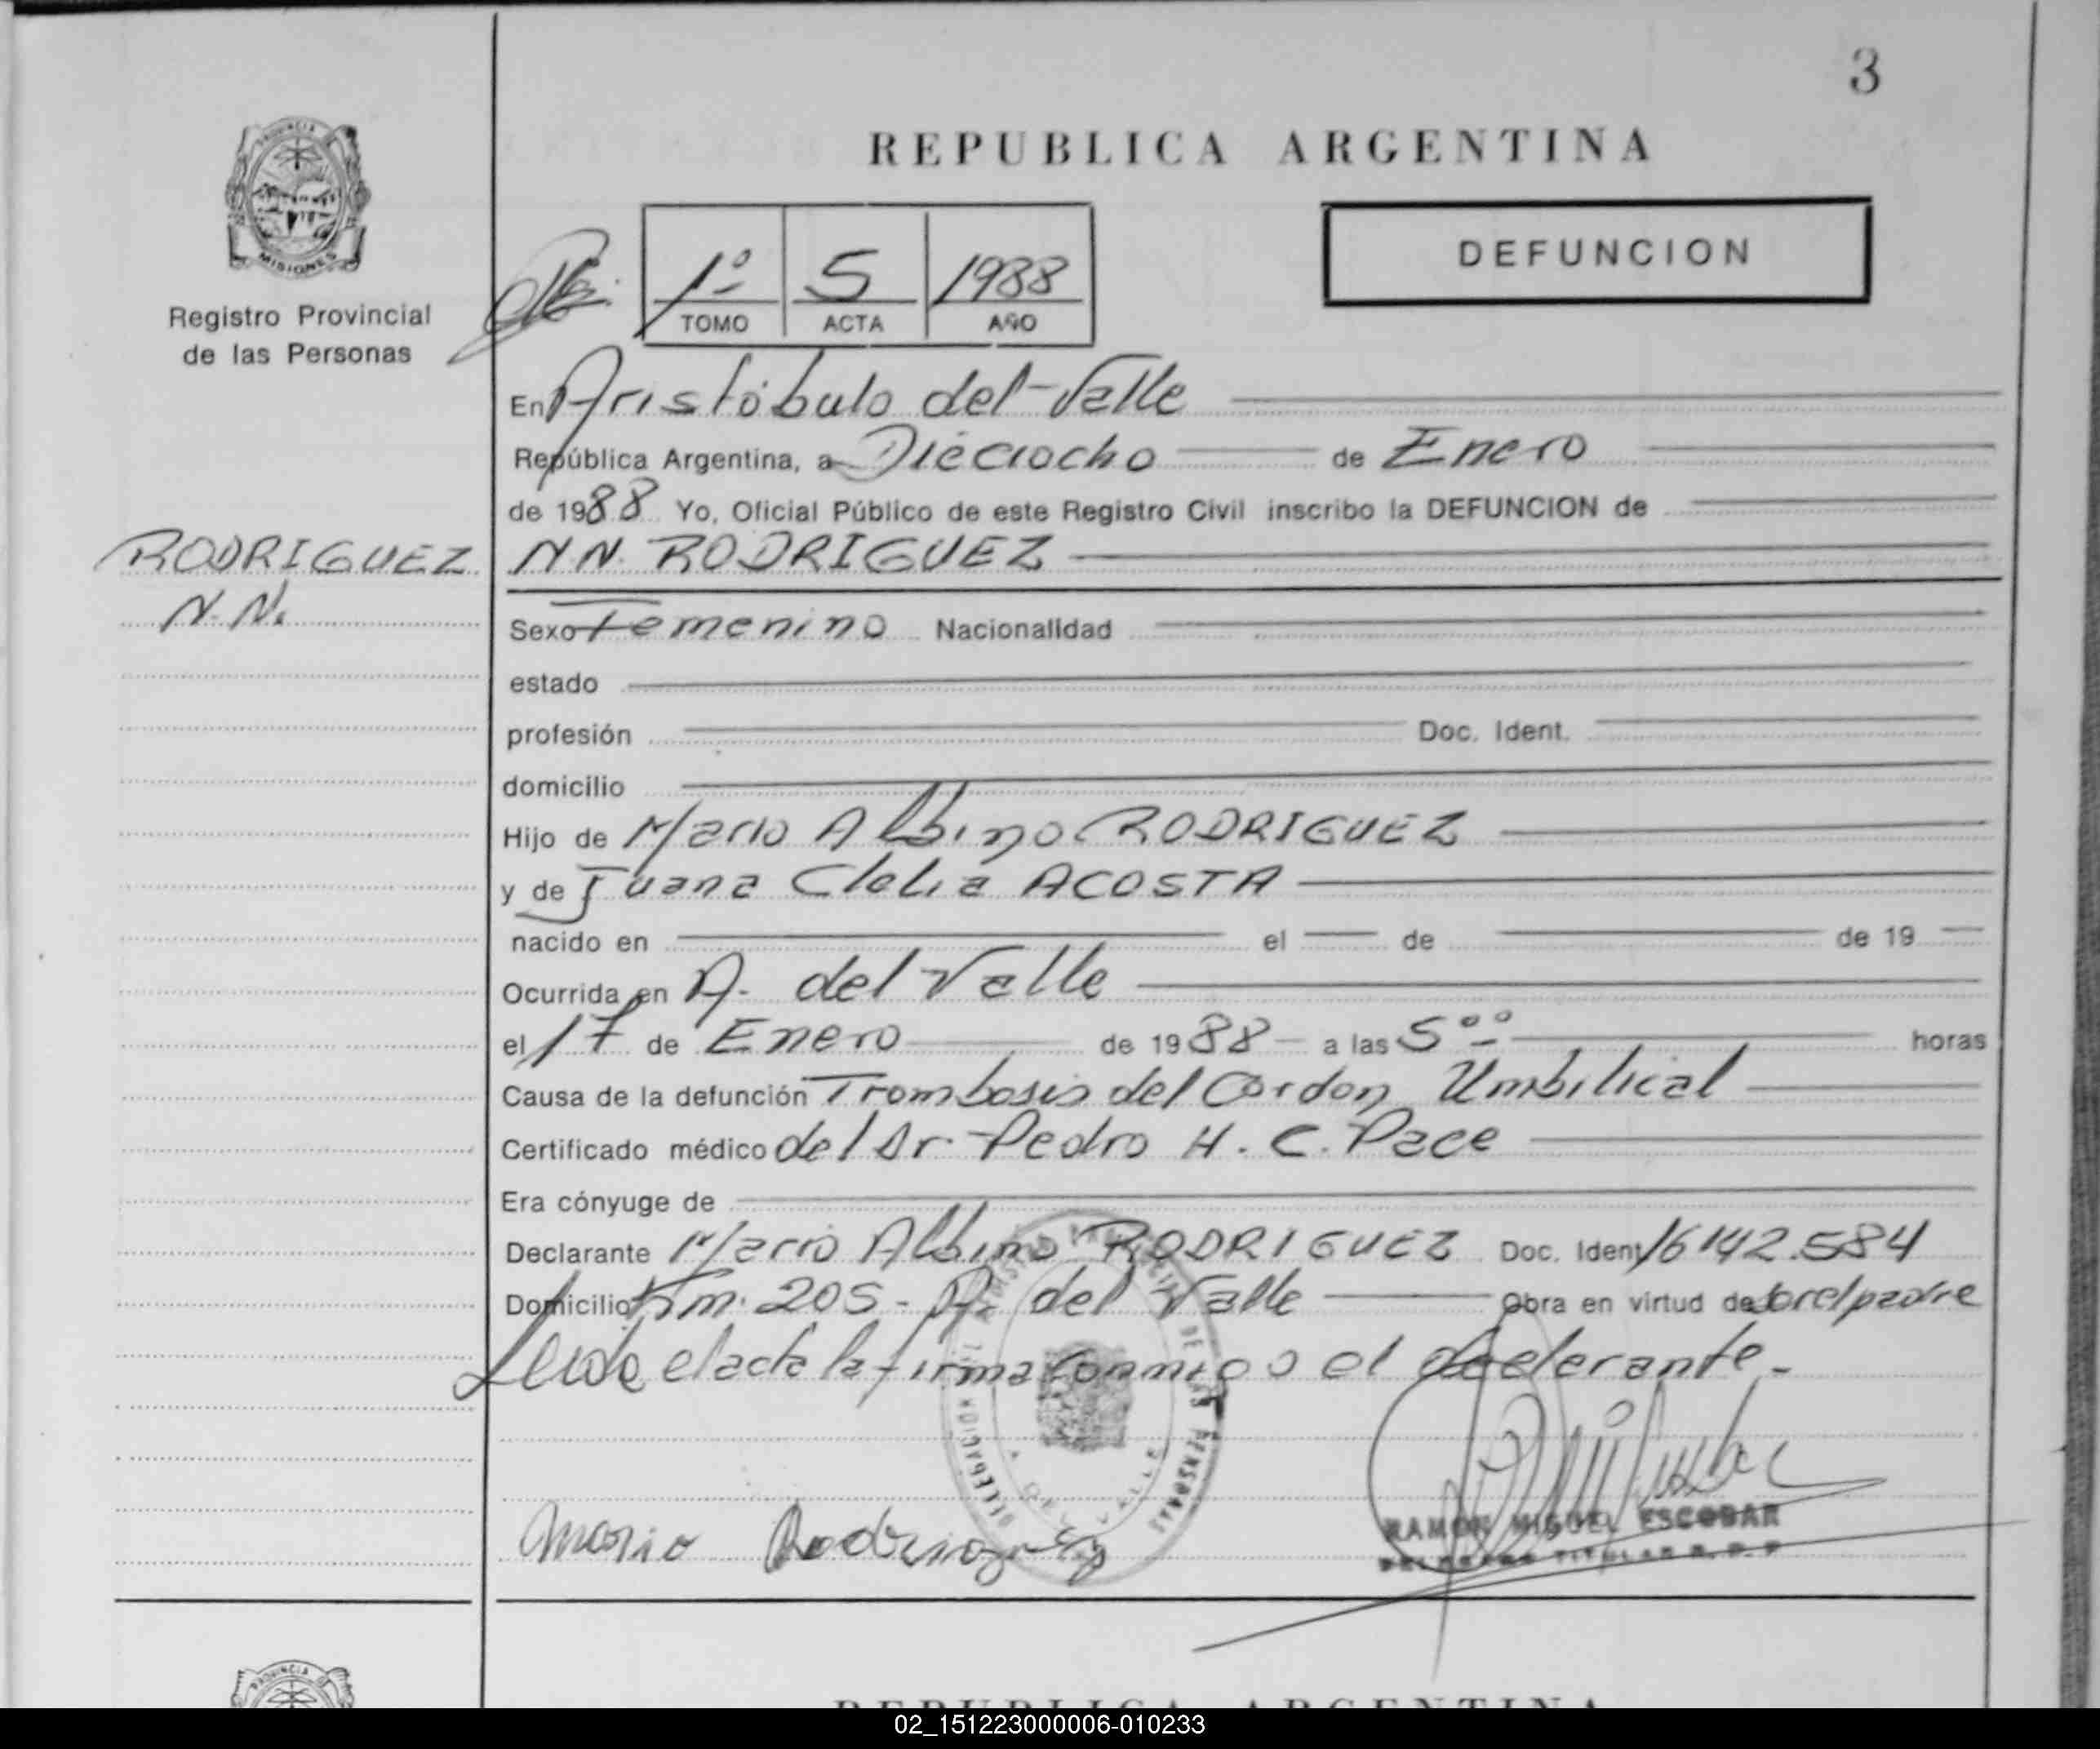 3
REPUBLICA ARGENTINA
PROVINCIA
MISIONES
Registro Provincial
de las Personas
DEFUNCION
1º 5 1988
TOMO ACTA AÑO
En Aristóbulo del Valle
República Argentina, a Dieciocho de Enero
de 1988 Yo, Oficial Público de este Registro Civil inscribo la DEFUNCION de
RODRIGUEZ
N.N.
N.N. RODRIGUEZ
Sexo Femenino Nacionalidad
estado
profesión Doc. Ident.
domicilio
Hijo de Mario Albino RODRIGUEZ
y de Juana Clelia ACOSTA
nacido en el de de 19
Ocurrida en A. del Valle
el 17 de Enero de 1988 a las 5ºº horas
Causa de la defunción Trombosis del Cordon Umbilical
Certificado médico del Dr. Pedro H. C. Pace
Era cónyuge de
Declarante Mario Albino RODRIGUEZ Doc. Ident 16142.584
Domicilio Km. 205 - A. del Valle Obra en virtud de ser el padre
Leida el acta la firma conmigo el declarante.-
Mario Rodriguez
RAMON MIGUEL ESCOBAR
DELEGADO TITULAR R. P. P
PROVINCIA
REPUBLICA ARGENTINA
02_151223000006-010233